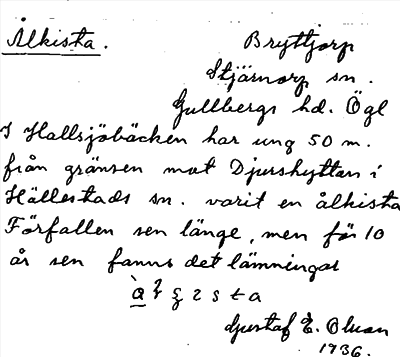 Ålkista.
Bryttjorp
Stjärnorp sn.
Gullbergs hd. Ögl
I Hallsjöbäcken har ung 50 m.
från gränsen mot Djurshyttan i
Hällestads sn. varit en ålkista
Förfallen sen länge, men för 10
år sen fanns det lämningar
Gustaf E. Olsson
1936.